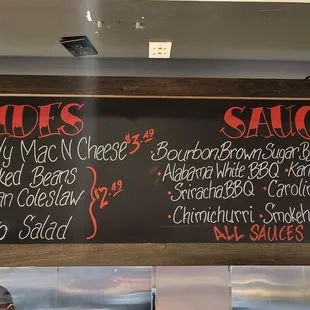 IDES
Mac N Cheese $3.49
ked Beans
an Coleslaw $2.49
o Salad
SAUC
Bourbon Brown Sugar B
• Alabama White BBQ • Kan
• Sriracha BBQ • Carolin
• Chimichurri • Smokeh
ALL SAUCES